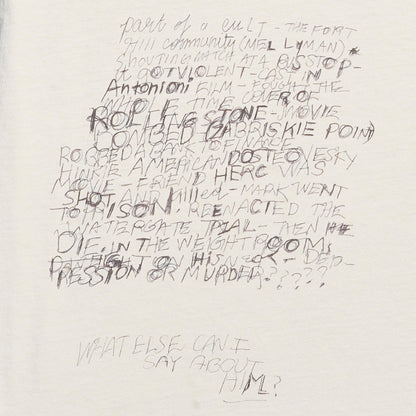 part of a cult - THE FORT
Hill community (MEL LYMAN) -
SHOUTING MATCH AT A BUSSTOP -
VIOLENT - CAST IN
Antonioni FILM -
WHOLE TIME COVER OF
ROLLINGSTONE - MOVIE
BOMBED (ZABRISKIE POINT)
ROBBED A BANK OF
AMERICAN DOSTEOVESKY
MOVIE - FRIEND HERC WAS
SHOT AND killed - MARK WENT
TO PRISON. REENACTED THE
WATERGATE TRIAL - THEN HE
DIED, IN THE WEIGHT ROOM,
WEIGHT ON HIS NECK - DEP-
RESSION OR MURDER?????
WHAT ELSE CAN I
SAY ABOUT
HIM?